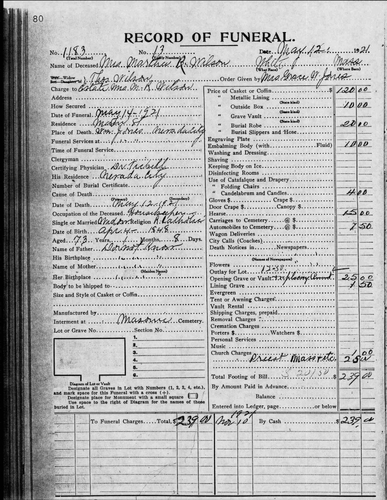 80
RECORD OF FUNERAL.
No. 1183 No. 13 Date May 12 1921
(Total Number) (Yearly Number)
Name of Deceased Mrs. Martha R. Wilson White
Widow of Thos Wilson Order Given by Mrs Grace W. Jones
Charge to Estate Mrs M. R. Wilson
Address
How Secured
Date of Funeral May 14-1921
Residence
Place of Death Wm Jones Nevada City
Funeral Services at
Time of Funeral Service
Clergyman
Certifying Physician
His Residence Nevada City
Number of Burial Certificate
Cause of Death
Date of Death May 12, 1921
Occupation of the Deceased Housekeeper
Single or Married Widow Religion Catholic
Date of Birth Apr 4- 1848
Aged 73 Years Months 8 Days
Name of Father Do Not Know
His Birthplace
Name of Mother
(Maiden Name)
Her Birthplace
Body to be shipped to
Size and Style of Casket or Coffin
Manufactured by
Interment at Masonic Cemetery.
Lot or Grave No. Section No.
1.
2.
3.
4.
5.
6.
Diagram of Lot or Vault
Designate all Graves in Lot with Numbers (1, 2, 3, 4, etc.),
and mark space for this Funeral with a cross (+)
Designate place for Monument with a small square
Use space to the right of Diagram for the names of those
buried in Lot.
Price of Casket or Coffin $ 120 00
" Metallic Lining
(State Kind)
" Outside Box 10 00
(State Kind)
" Grave Vault
(State Kind)
" Burial Robe 20 00
(State Kind)
" Burial Slippers and Hose
Engraving Plate
Embalming Body (with Fluid) 10 00
Washing and Dressing
Shaving
Keeping Body on Ice
Disinfecting Rooms
Use of Catafalque and Drapery
" Folding Chairs
" Candelabrum and Candles 4 00
Gloves $ Crepe $
Door Crape $ Canopy $
Hearse 15 00
Carriages to Cemetery @ $
Automobiles to Cemetery @ $ 7 50
Wagon Deliveries
City Calls (Coaches)
Death Notices in Newspapers
Flowers
Outlay for Lot
Opening Grave or Vault 25 00
Lining Grave 7 50
Evergreen
Tent or Awning Charges
Vault Rental
Shipping Charges, prepaid
Removal Charges
Cremation Charges
Porters $ Watchers $
Personal Services
Music
Church Charges
Priest Mass etc
Total Footing of Bill $ 239 00
By Amount Paid in Advance
Balance
Entered into Ledger, page or below.
To Funeral Charges, Total $ 239 00 By Cash $ 239 00